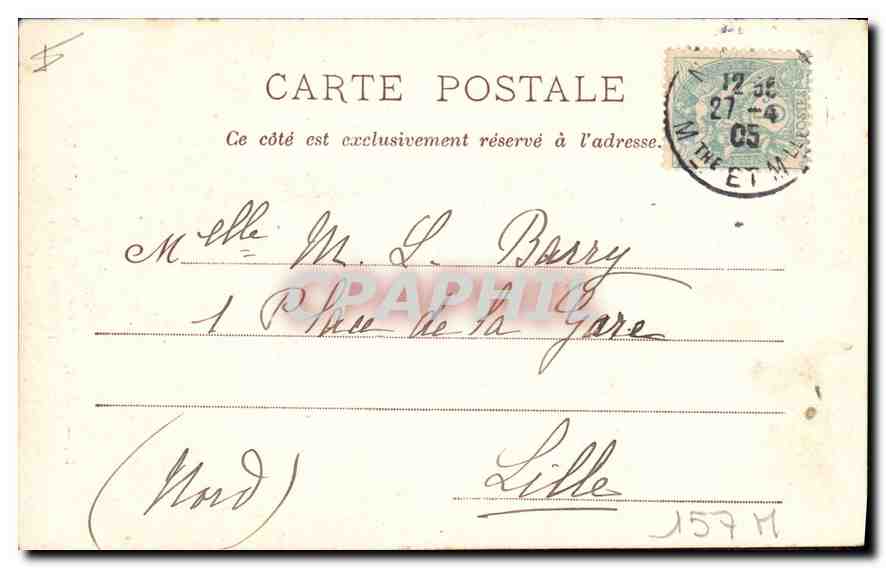 CARTE POSTALE
Ce côté est exclusivement réservé à l'adresse.
12
27 - 4
05
MTHE ET MLLE
POSTES
Melle M. L. Barry
CPAPHIL
1 Place de la Gare
(Nord) Lille
157 M